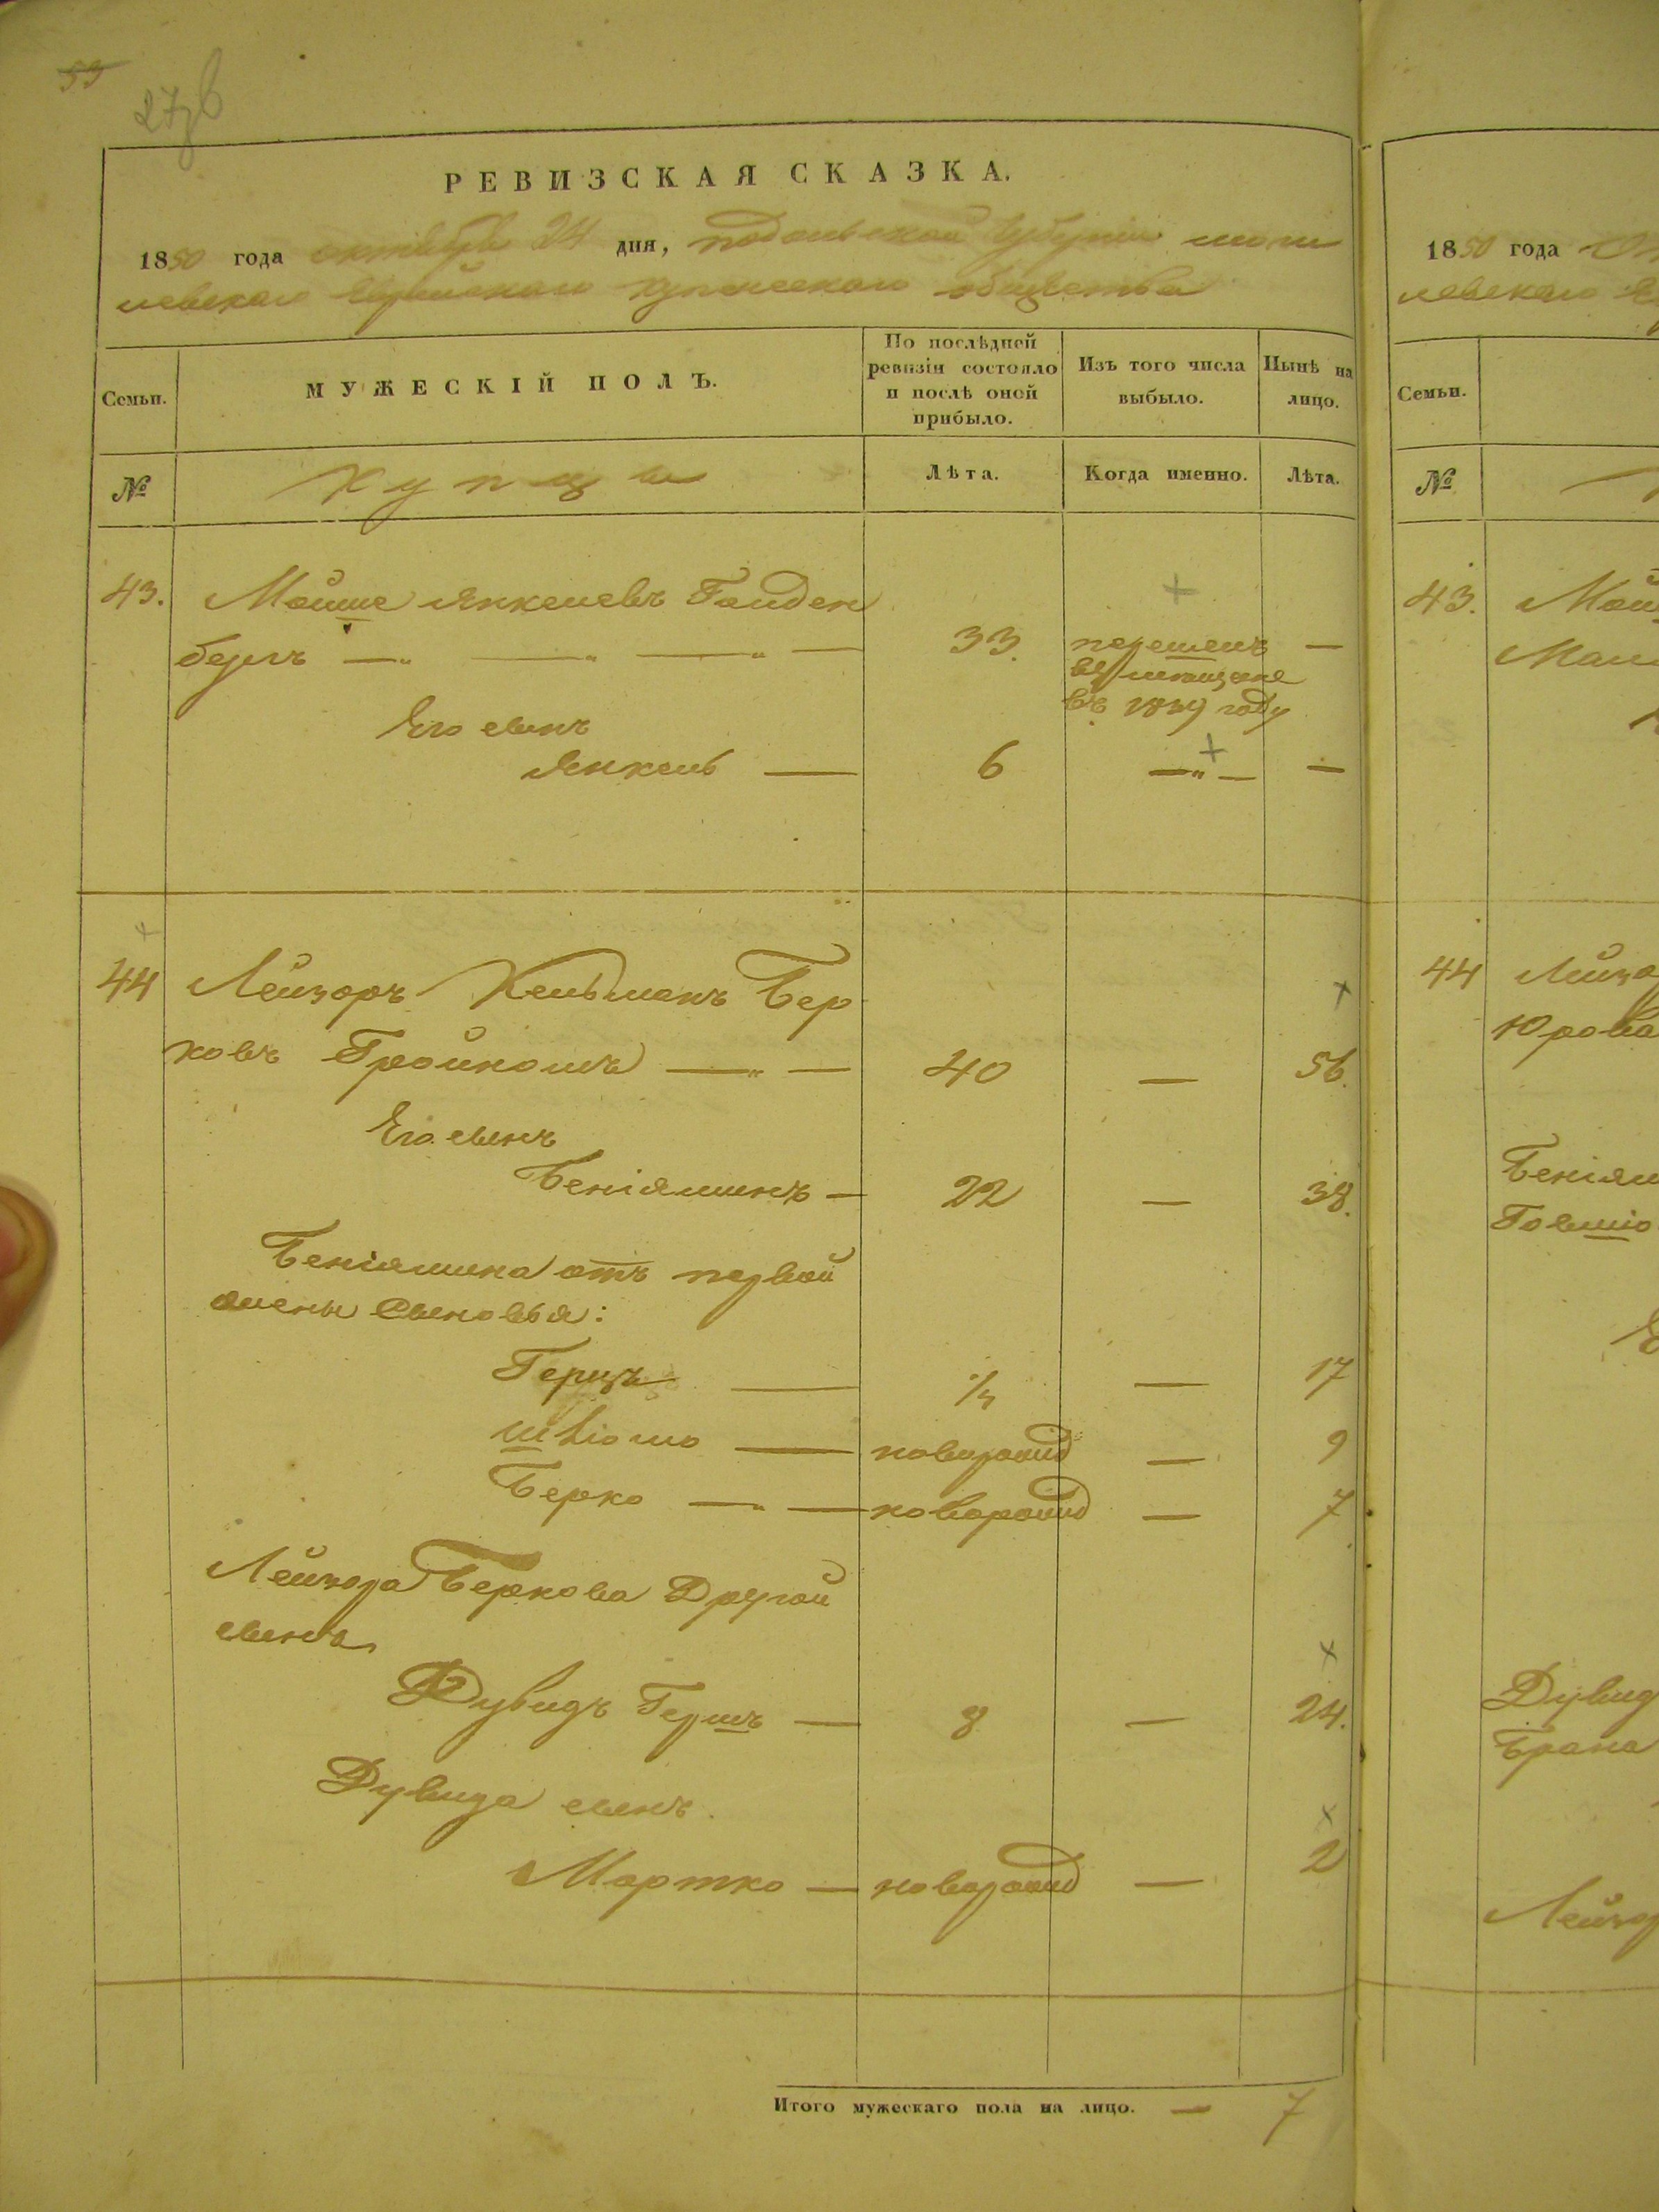 53
273б
РЕВИЗСКАЯ СКАЗКА.
1850 года октября 24 дня, подольской губерніи моги
левскаго Еврейскаго купеческаго общества
Семьи.
МУЖЕСКІЙ ПОЛЪ.
По послѣдней ревизіи состояло и послѣ оной прибыло.
Изъ того числа выбыло.
Нынѣ на лицо.
№
Купцы
Лѣта.
Когда именно.
Лѣта.
43. Мойше Янкелевъ Гольден
бергъ — 33. перешелъ —
въ мещане
въ 1839 году
Его сынъ
Янкель — 6 — " — —
44 Лейзоръ Кельманъ Бер
ковъ Гройномъ — " — 40 — 56.
Его сынъ
Беніяминъ — 22 — 38.
Беніямина отъ первой
жены сыновья:
Герцъ — 1/2 — 17
Шліомо — новорожд — 9
Берко — " — новорожд — 7
Лейзора Беркова Другой
сынъ
Дувидъ Гершъ — 8 — 24.
Дувида сынъ.
Мортко — новорожд — 2
Итого мужескаго пола на лицо. — 7
1850 года
левскаго
Семьи.
№
43.
44
Юрова
Брана